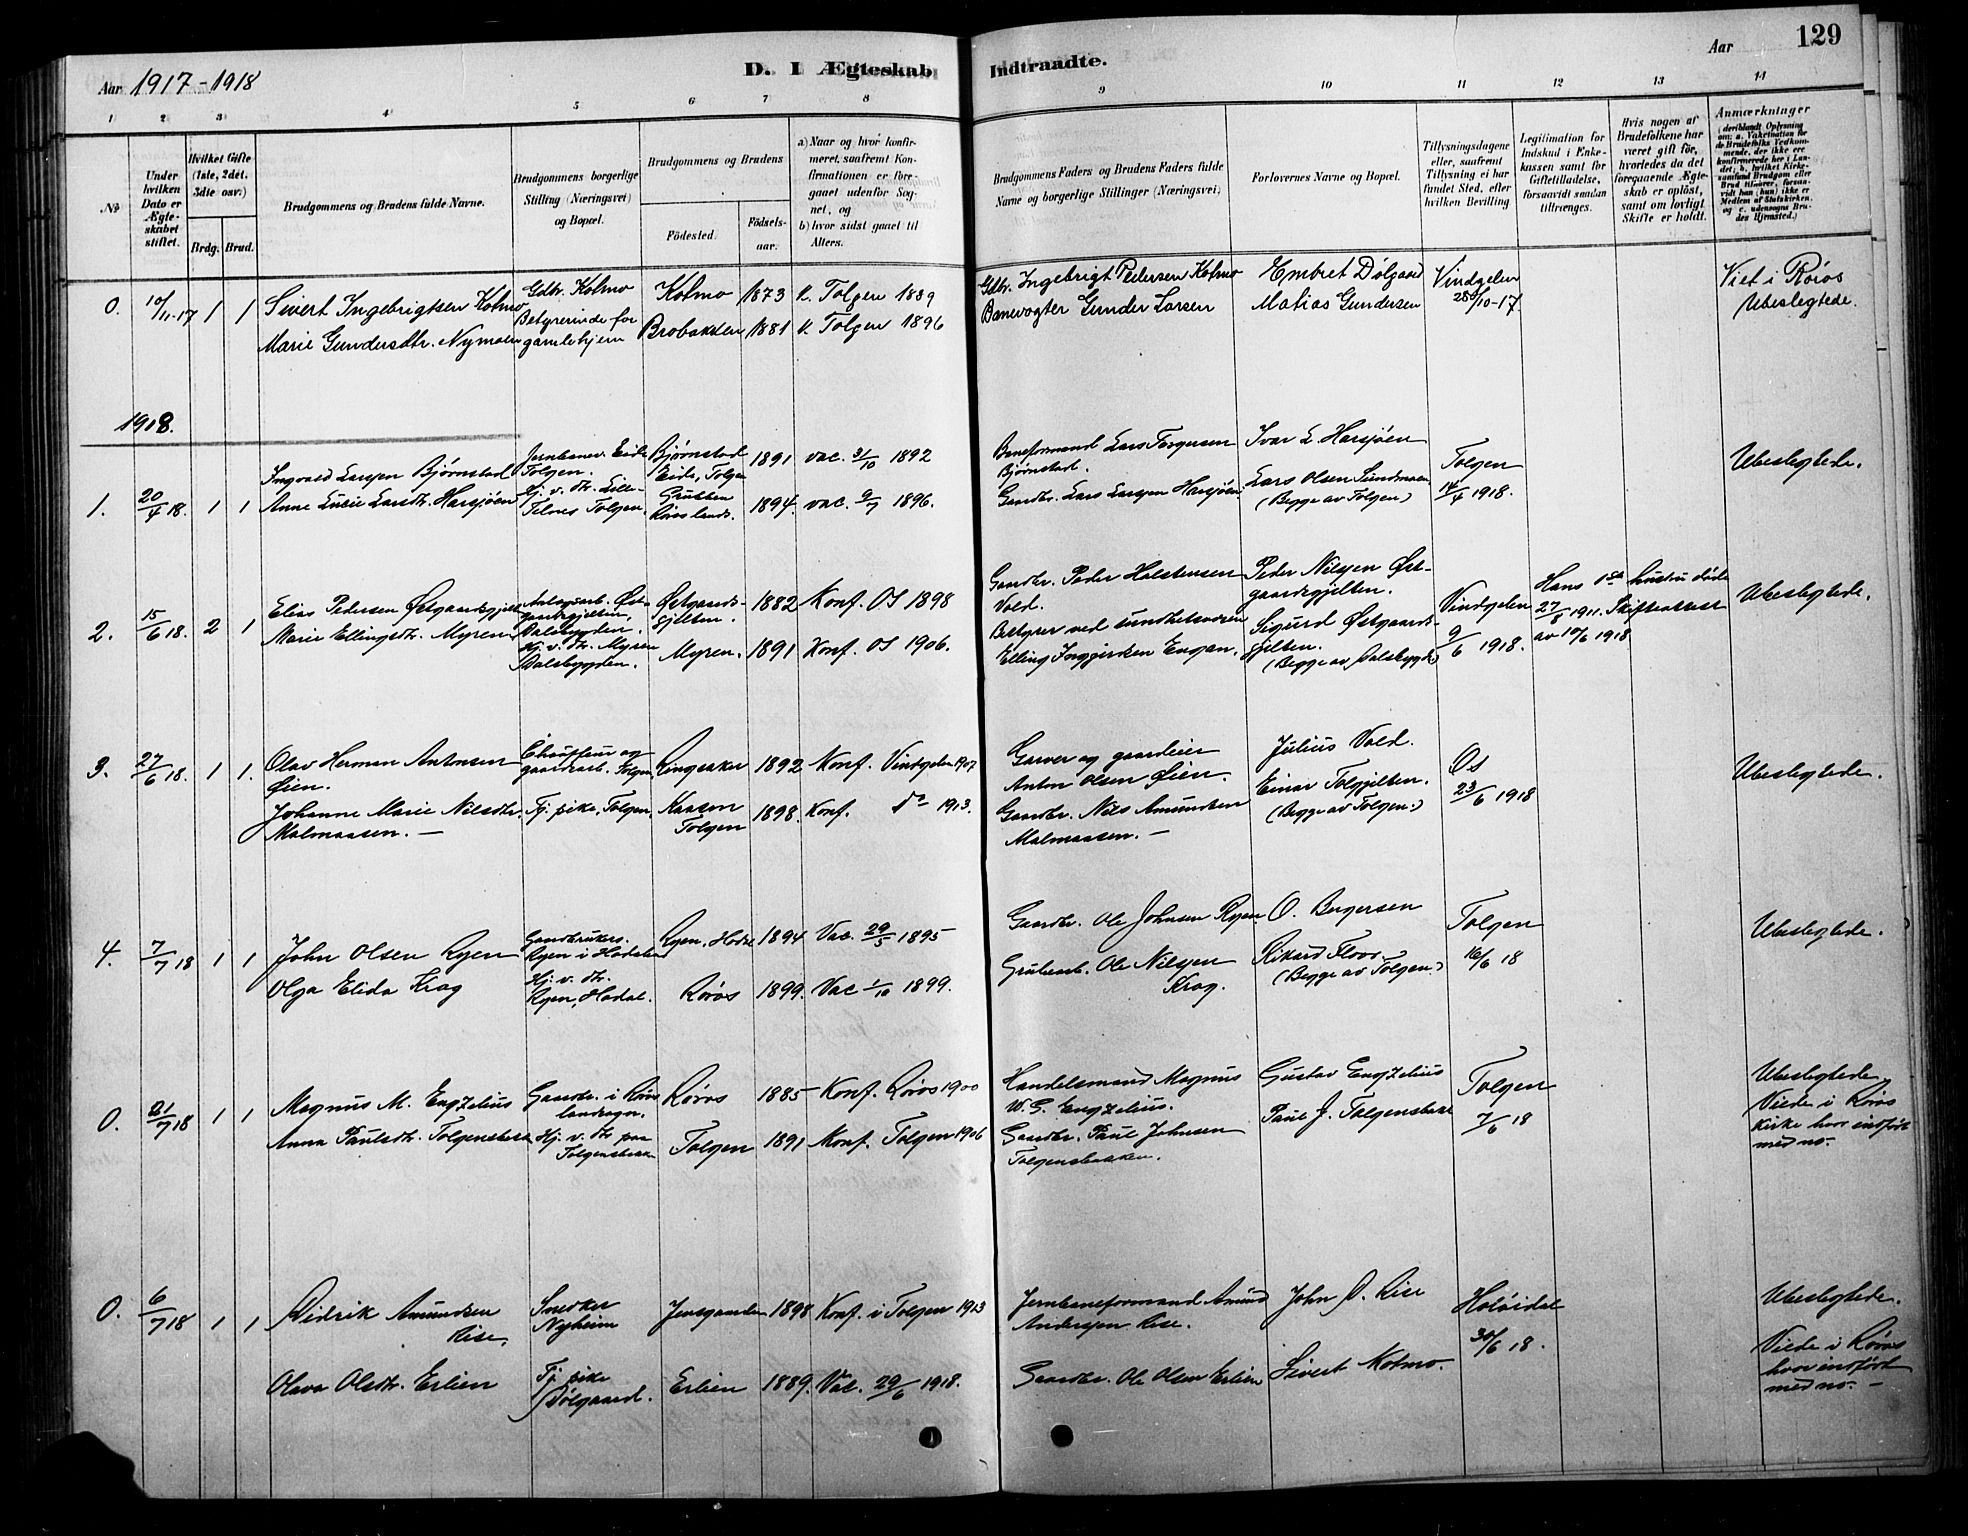 Aar 1917-1918
D. I Ægteskab
Indtraadte.
Aar
129
1 2 3 4 5 6 7 8 9 10 11 12 13 14
No
Under hvilken Dato er Ægteskabet stiftet.
Hvilket Gifte (1ste, 2det, 3die osv.)
Brdg. Brud.
Brudgommens og Brudens fulde Navne.
Brudgommens borgerlige Stilling (Næringsvei) og Bopæl.
Brudgommens og Brudens
Födested.
Födselsaar.
a) Naar og hvor konfirmeret, saafremt Konfirmationen er foregaaet udenfor Sognet, og
b) hvor sidst gaaet til Alters.
Brudgommens Faders og Brudens Faders fulde Navne og borgerlige Stillinger (Næringsvei)
Forlovernes Navne og Bopæl.
Tillysningsdagene eller, saafremt Tillysning ei har fundet Sted, efter hvilken Bevilling
Legitimation for Indskud i Enkekassen samt for Giftetilladelse, forsaavidt saadan tiltrænges.
Hvis nogen af Brudefolkene har været gift för, hvorledes da det foregaaende Ægteskab er oplöst, samt om lovligt Skifte er holdt.
Anmærkninger
0. 10/11-17 1 1
Sivert Ingebrigtsen Kotmo
Marie Gundersdtr. Nymoen
Gdbr. Kotmo
Bestyrerinde for
gamlehjem
Kotmo 1873 k. Tolgen 1889
Brobakken 1881 k. Tolgen 1896
Gdbr. Ingebrigt Pedersen Kotmo
Banevogter Gunder Larsen
Embret Dølgaard
Matias Gundersen
Vindgelen
28/10-17
Viet i Røros
Ubeslegtede.
1918.
1. 20/4 18. 1 1
Ingvald Larsen Bjørnstad
Anne Lucie Larsdtr. Harsjøen
Jernbanev. Eide
Tolgen.
Hj. v. dtr. Lille-
Telnes Tolgen.
Bjørnstad
Eide, Tolgen
Grubben
Røros lands.
1891 vac. 31/10 1892
1894. vac. 9/7 1896.
Baneformand Lars Torgersen
Bjørnstad.
Gaardbr. Lars Larsen Harsjøen
Ivar L. Harsjøen
Lars Olsen Sundmoen
(Begge av Tolgen)
Tolgen
14/4 1918.
Ubeslegtede.
2. 15/6 18. 2 1
Elias Pedersen Østgaardsgjelten
Marie Ellingsdtr. Myren
Anlægsarb. Øst-
gaardsgjelten,
Dalsbygden.
Hj. v. dtr. Myren
Dalsbygden.
Østgaards-
gjelten.
Myren.
1882 Konf. Os 1898
1891 Konf. Os 1906.
Gaardbr. Peder Holstensen
Vold.
Bestyrer ved sundhetsvæsen
Elling Engan.
Peder Nilsen Øst-
gaardsgjelten.
Sigurd Østgaards-
gjelten.
(Begge av Dalsbygd)
Vindgelen
9/6 1918.
Hans 1ste hustru døde
27/8 1911. Skifteattest
av 10/6 1918.
Ubeslegtede.
3. 27/6 18. 1 1.
Olav Herman Antonsen
Øien.
Johanne Marie Nilsdtr.
Malmaasen. —
Chauffeur og
gaardarb. Tolgen
Tj. pike, Tolgen.
Ringsaker
Kaasen
Tolgen
1892 Konf. Vindgelen 1907
1898. Konf. do 1913.
Garver og gaardeier
Anton Olsen Øien.
Gaardbr. Nils Amundsen
Malmaasen. —
Julius Vold.
Einar Tolggjelten.
(Begge av Tolgen.)
Os
23/6 1918
Ubeslegtede.
4. 7/7 18 1 1
John Olsen Ryen
Olga Elida Krag
Gaardbrukers.
Ryen i Hodalen
Hj. v. dtr.
Ryen, Hodal.
Ryen, Hodal
Røros
1894 Vac. 29/5 1895
1899. Vac 1/10 1899.
Gaardbr. Ole Johnsen Ryen
Grubearb. Ole Nilsen
Krag.
O. Bugersen
Rikard Floor.
(Begge av Tolgen.)
Tolgen
16/6 18
Ubeslegtede.
0. 21/7 18 1 1
Magnus M. Engzelius
Anna Paulsdtr. Tolgensbakk
Gaardbr. i Røros
landsogn.
Hj. v. dtr paa
Tolgensbakken
Røros
Tolgen
1885 Konf. Røros 1900
1891 Konf. Tolgen 1906
Handelsmand Magnus
W. G. Engzelius.
Gaardbr. Paul Johnsen
Tolgensbakken.
Gustav Engzelius
Paul J. Tolgensbakk
Tolgen
7/6 18
Ubeslegtede
Viede i Røros
kirke hvor indført
med no. -
0. 6/7 18 1 1
Didrik Amundsen
Rise.
Olava Olsdtr. Erlien
Snedker
Nyheim
Tj. pike
Dølgaard.
Jensgaarden
Erlien
1898 Konf. i Tolgen 1913
1889. Vac. 29/6 1918.
Jernbaneformand Amund
Andersen Rise.
Gaardbr. Ole Olsen Erlien
John O. Rise
Sivert Kotmo.
Holøidal
30/6 18.
Ubeslegtede.
Viede i Røros
hvor indført
med no. -